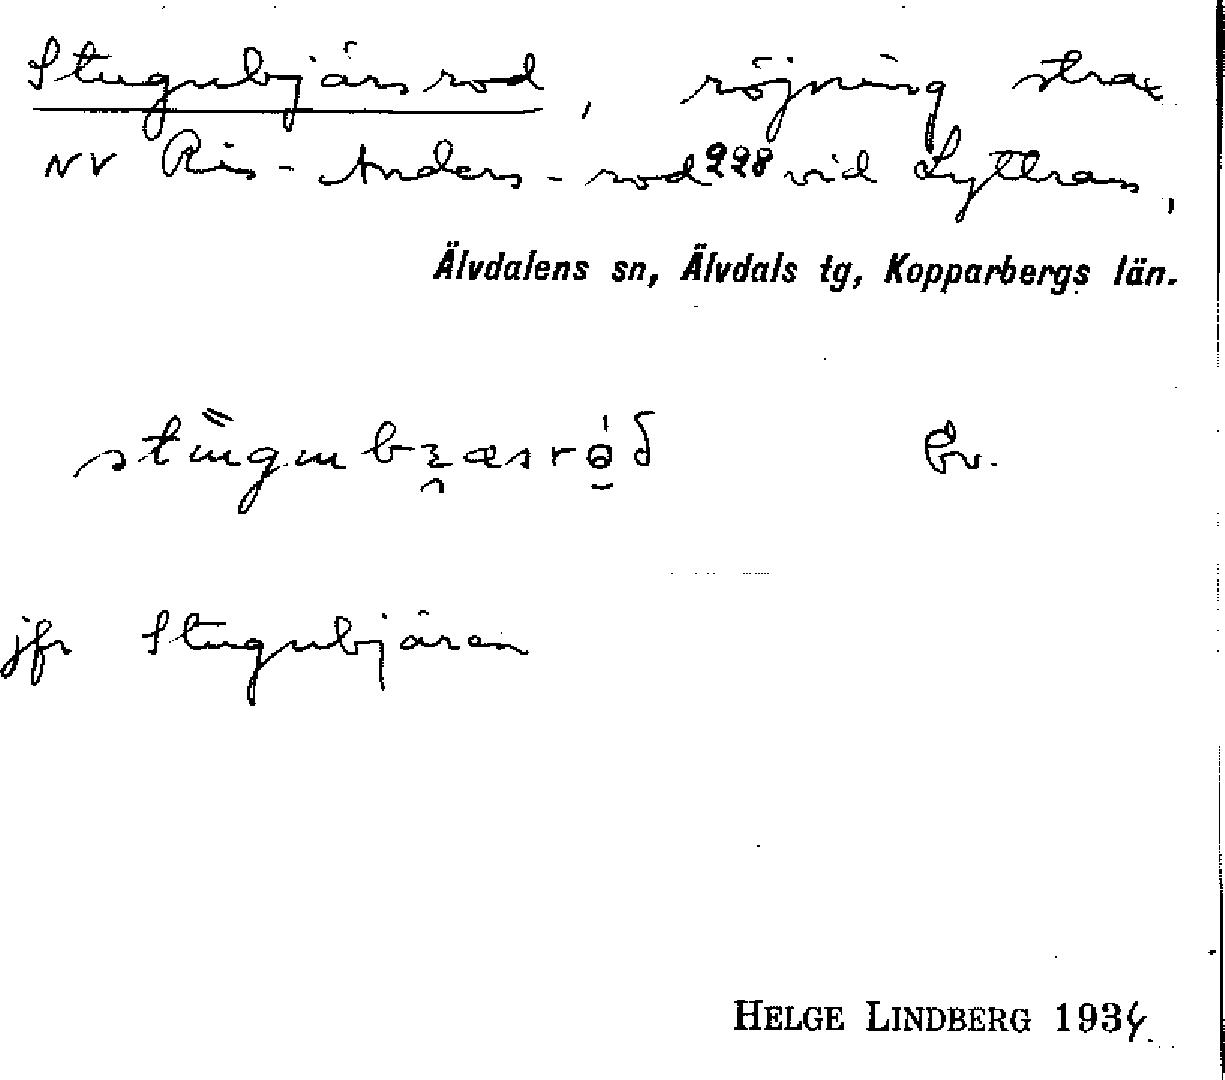 Stugubjärsrod, röjning strax
NV Ris-Anders-rod 228 vid Lyttran,
Älvdalens sn, Älvdals tg, Kopparbergs län.
Ev.
jfr Stugubjären
HELGE LINDBERG 1934